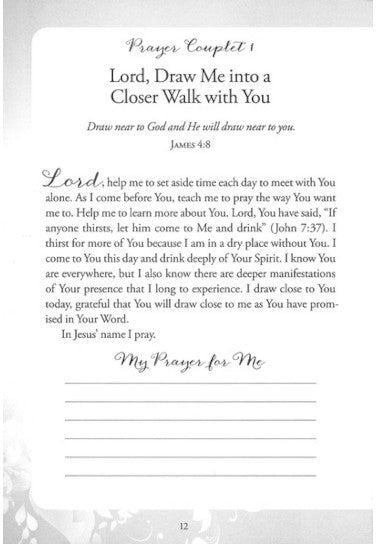 Prayer Couplet 1
Lord, Draw Me into a
Closer Walk with You
Draw near to God and He will draw near to you.
James 4:8
Lord, help me to set aside time each day to meet with You
alone. As I come before You, teach me to pray the way You want
me to. Help me to learn more about You. Lord, You have said, “If
anyone thirsts, let him come to Me and drink” (John 7:37). I
thirst for more of You because I am in a dry place without You. I
come to You this day and drink deeply of Your Spirit. I know You
are everywhere, but I also know there are deeper manifestations
of Your presence that I long to experience. I draw close to You
today, grateful that You will draw close to me as You have prom-
ised in Your Word.
In Jesus’ name I pray.
My Prayer for Me
12